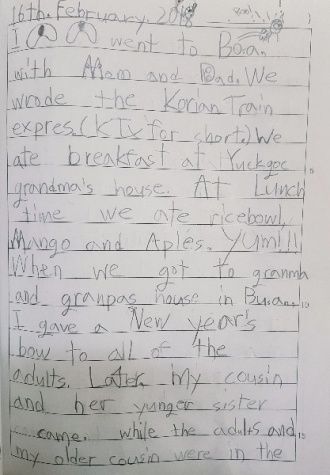 16th. February 20
I went to Busan.
with Mom and Dad. We
wrode the Korian Train
expres. (KTX for short.) We
ate breakfast at Yuckgoc
grandma's house. At Lunch
time we ate ricebowl,
Mango and Aples. YUM!!!
When we got to granma
and granpas house in Busan.
I gave a New year's
bow to all of the
adults. Later, my cousin
and her yunger sister
came. while the adults and
my older cousin were in the